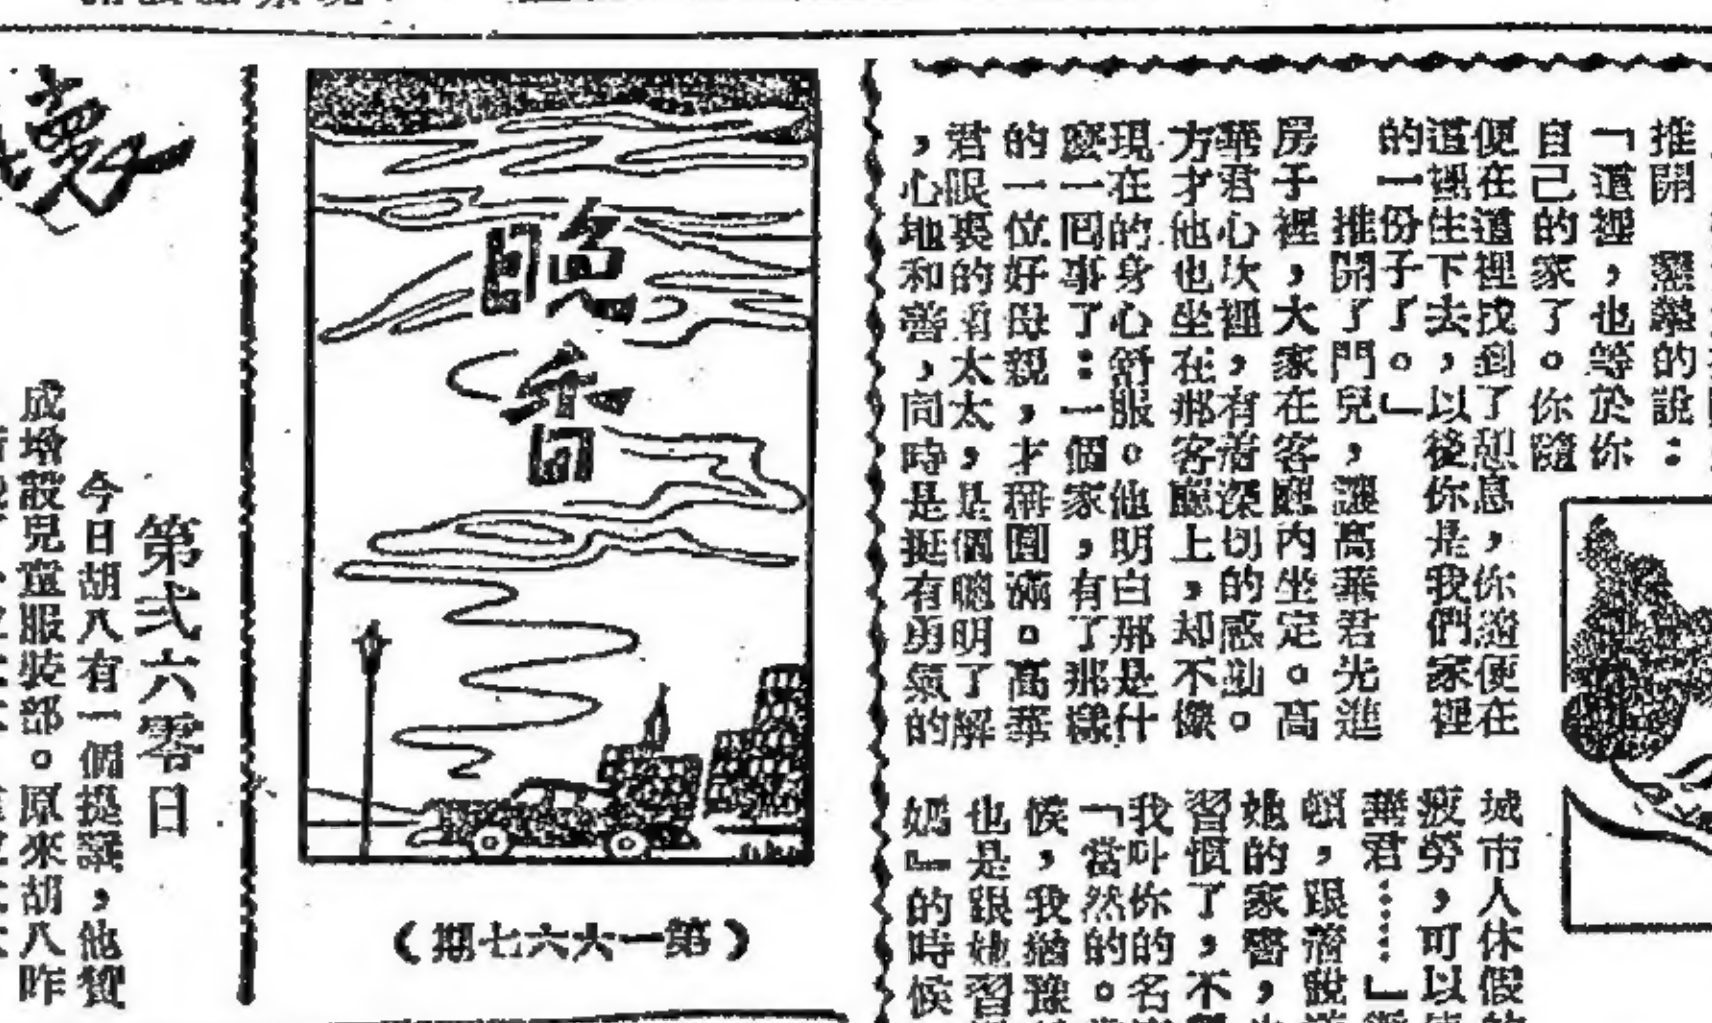 推開
懃的說：
「這裡，也等於你
自己的家了。你隨
便在這裡找到了憩息，你邀便在
這裡住下去，以後你是我們家裡
的一份子了。」
推開了門兒，讓高華君先進
房子裡，大家在客廳內坐定。高
華君心坎裡，有着深切的感動。
方才他也坐在那客廳上，却不像
現在的身心舒服。他明白那是什
麼一回事了：一個家，有了那樣
的一位好母親，才稱圓滿。高華
君眼裏的太太，是個聰明了解
，心地和善，同時是挺有勇氣的
城市人休假
疲勞，可以
華君……」
頓，跟着說
她的家書，
習慣了，不
我叫你的名
「當然的。
候，我猶豫
也是跟她習
媽』的時候
晚香
（第一六六七期）
第弍六零日
今日胡八有一個提議，他贊
成增設兒童服裝部。原來胡八昨